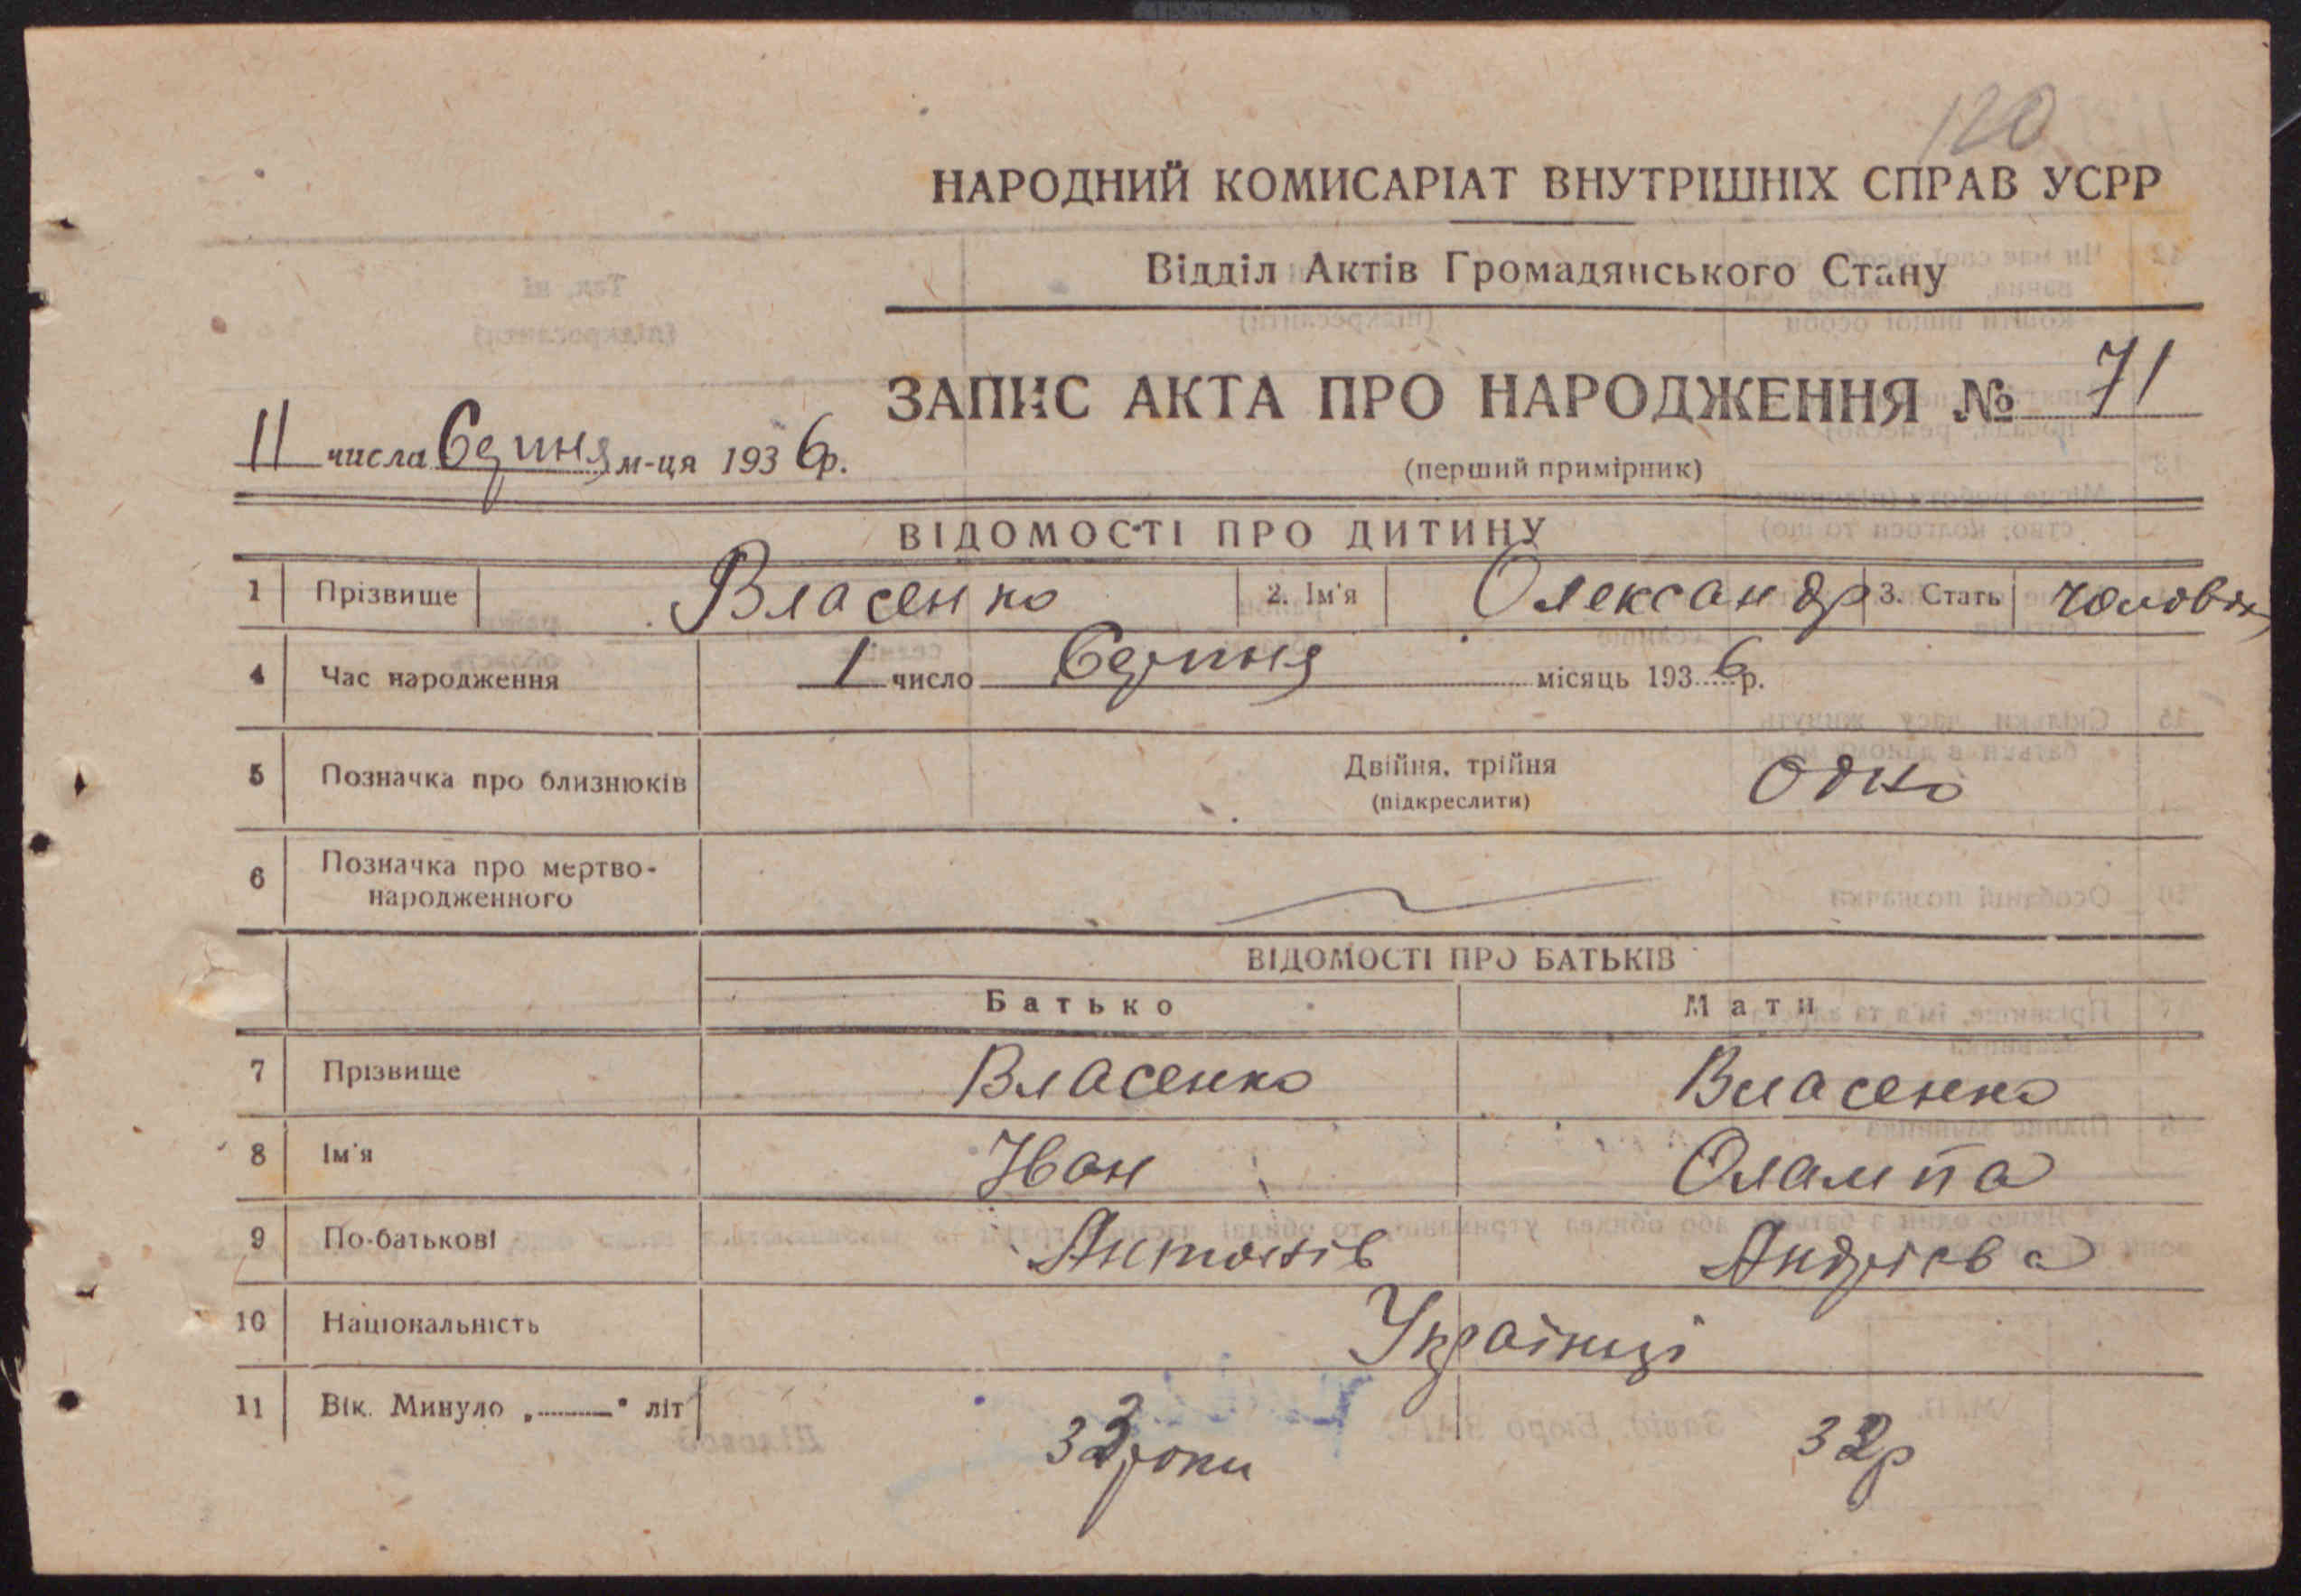 120
НАРОДНИЙ КОМИСАРІАТ ВНУТРІШНІХ СПРАВ УСРР
Відділ Актів Громадянського Стану
ЗАПИС АКТА ПРО НАРОДЖЕННЯ № 71
11 числа Серпня м-ця 1936 р.
(перший примірник)
ВІДОМОСТІ ПРО ДИТИНУ
1 Прізвище Власенко 2. Ім'я Олександр 3. Стать чоловік
4 Час народження 1 число Серпня місяць 1936 р.
5 Позначка про близнюків Двійня, трійня (підкреслити) одно
6 Позначка про мертво-
народженного
ВІДОМОСТІ ПРО БАТЬКІВ
Батько Мати
7 Прізвище Власенко Власенко
8 Ім'я Іван Олампа
9 По-батькові Антонів Андрієва
10 Національність Українці
11 Вік. Минуло „ " літ 33 роки 32 р